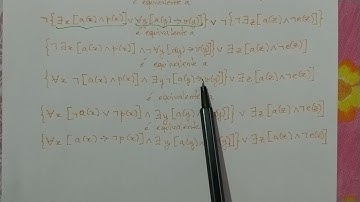 ¬{∃x[a(x)∧p(x)] ∨ ∀y[a(y)→v(y)]} ∨ ¬{¬∃z[a(z)∧¬e(z)]}
é equivalente a
{¬∃x[a(x)∧p(x)] ∧ ¬∀y[a(y)→v(y)]} ∨ ∃z[a(z)∧¬e(z)]
é equivalente a
{∀x ¬[a(x)∧p(x)] ∧ ∃y ¬[a(y)→v(y)]} ∨ ∃z[a(z)∧¬e(z)]
é equivalente a
{∀x[¬a(x) ∨ ¬p(x)] ∧ ∃y[a(y)∧ ]} ∨ ∃z[a(z)∧¬e(z)]
é equivalente a
{∀x[a(x)→¬p(x)] ∧ ∃y[a(y)∧ ]} ∨ ∃z[a(z)∧¬e(z)]